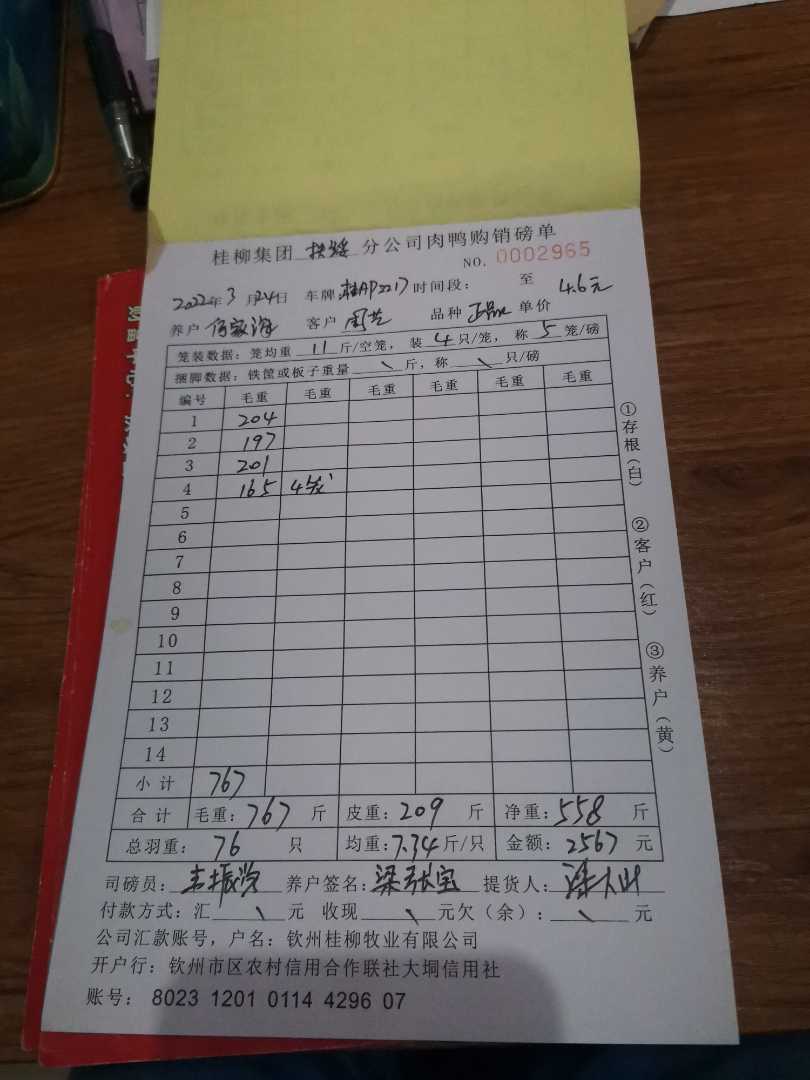 桂柳集团 扶绥 分公司肉鸭购销磅单
NO. 0002965
2022年3月24日 车牌 桂AP2217 时间段: 至
养户 客户 周芝 品种 正品 单价 4.6元
笼装数据: 笼均重 11 斤/空笼, 装 4 只/笼, 称 5 笼/磅
捆脚数据: 铁筐或板子重量 \ 斤, 称 \ 只/磅
编号 毛重 毛重 毛重 毛重 毛重 毛重
1 204
2 197
3 201
4 165 4笼
5
6
7
8
9
10
11
12
13
14
小计 767
合计 毛重: 767 斤 皮重: 209 斤 净重: 558 斤
总羽重: 76 只 均重: 7.34 斤/只 金额: 2567 元
司磅员: 养户签名: 梁张宝 提货人:
付款方式: 汇 \ 元 收现 \ 元欠(余): \ 元
公司汇款账号, 户名: 钦州桂柳牧业有限公司
开户行: 钦州市区农村信用合作联社大垌信用社
账号: 8023 1201 0114 4296 07
①存根(白)
②客户(红)
③养户(黄)